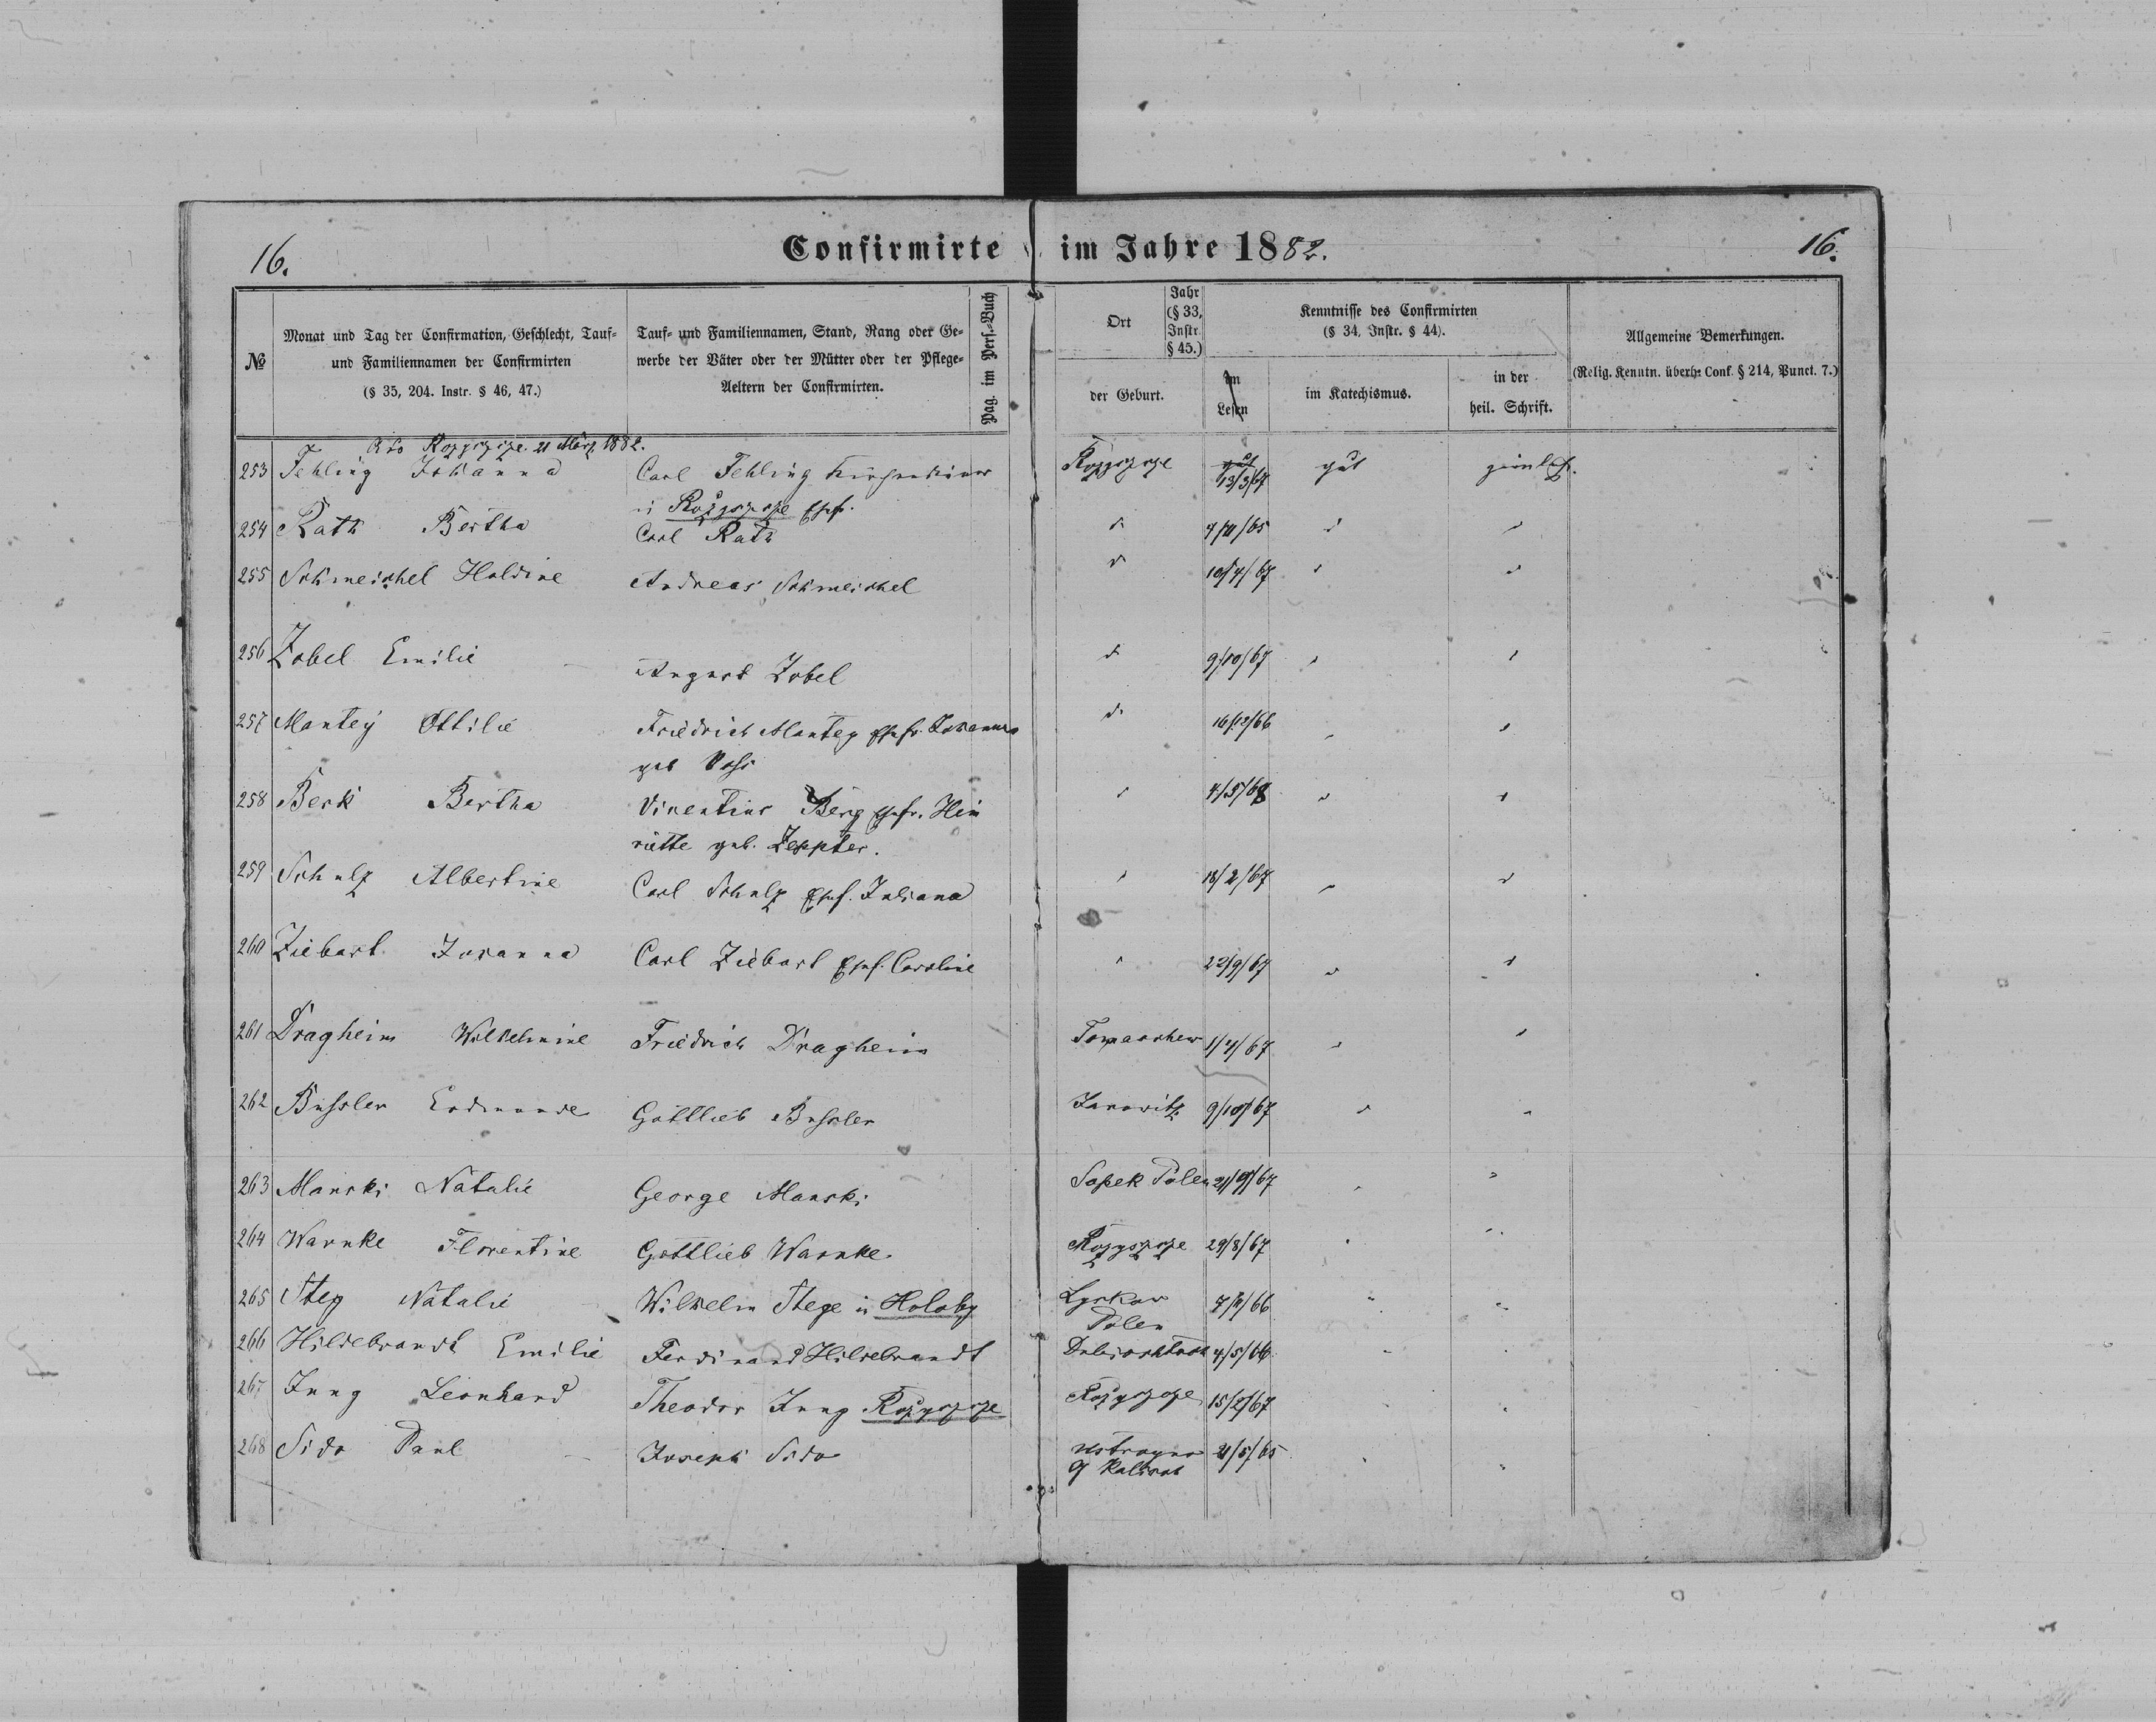 16.
Confirmirte im Jahre 1882.
16.
№
Monat und Tag der Confirmation, Geschlecht, Tauf-
und Familiennamen der Confirmirten
(§ 35, 204. Instr. § 46, 47.)
Tauf- und Familiennamen, Stand, Rang oder Ge-
werbe der Väter oder der Mütter oder der Pflege-
Aeltern der Confirmirten.
Pag. im Pers.-Buch
Ort
Jahr
(§ 33,
Instr.
§ 45.)
der Geburt.
Kenntnisse des Confirmirten
(§ 34, Instr. § 44).
im
Lesen
im Katechismus.
in der
heil. Schrift.
Allgemeine Bemerkungen.
(Relig. Kenntn. überh. Conf. § 214, Punct. 7.)
Rozyszcze 21 März 1882.
253 Fehling Johanna Carl Fehling Rozyszcze gut 13/3/67 gut ziemlich.
in Rozyszcze Ehefr.
254 Rath Bertha Carl Rath 65
255 Schmeichel Huldine Andreas Schmeichel 10/4/67
256 Zobel Emilie August Zobel 9/10/67
257 Mantey Ottilie Friedrich Mantey Ehefr. Johanna 16/12/66
geb Voss
258 Berk Bertha Vincentius Berg Ehefr. Hen
riette geb. Zeppter.
259 Schulz Albertine Carl Schulz Ehef. Juliana 18/2/67
260 Ziebart Johanna Carl Ziebart Ehef. Caroline 22/9/67
261 Dragheim Wilhelmine Friedrich Dragheim Tomaschew 1/4/67
262 Bussler Erdmunde Gottlieb Bussler Janowitz 9/10/67
263 Manski Natalie George Manski Polen 21/9/67
264 Warnke Florentine Gottlieb Warnke Rozyszcze 29/8/67
265 Steg Natalie Wilhelm Stege in Holoby 66
Polen
266 Hildebrandt Emilie Ferdinand Hildebrandt 4/5/66
267 Jung Leonhard Theodor Jung Rozyszcze Rozyszcze 15/2/67
268 Sido Paul Joseph Sido 21/5/65